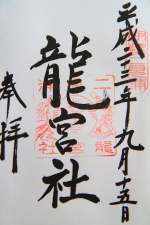 平成二三年九月十五日
龍宮社
奉拝